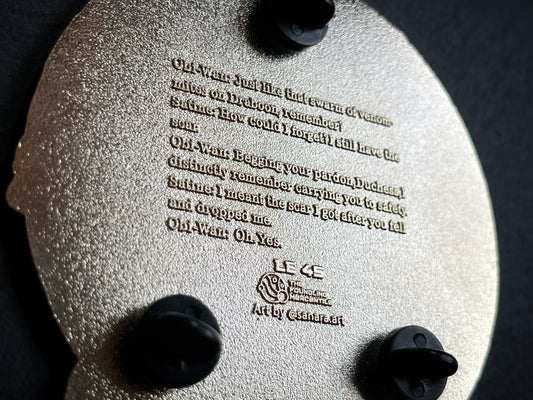 Obi-Wan: Just like that swarm of venom-
mites on Draboon, remember?
Satine: How could I forget? I still have the
scar.
Obi-Wan: Begging your pardon, Duchess, I
distinctly remember carrying you to safety.
Satine: I meant the scar I got after you fell
and dropped me.
Obi-Wan: Oh. Yes.
LE 45
THE
FOUNDLING
MERCANTILE
Art by @sahara.art